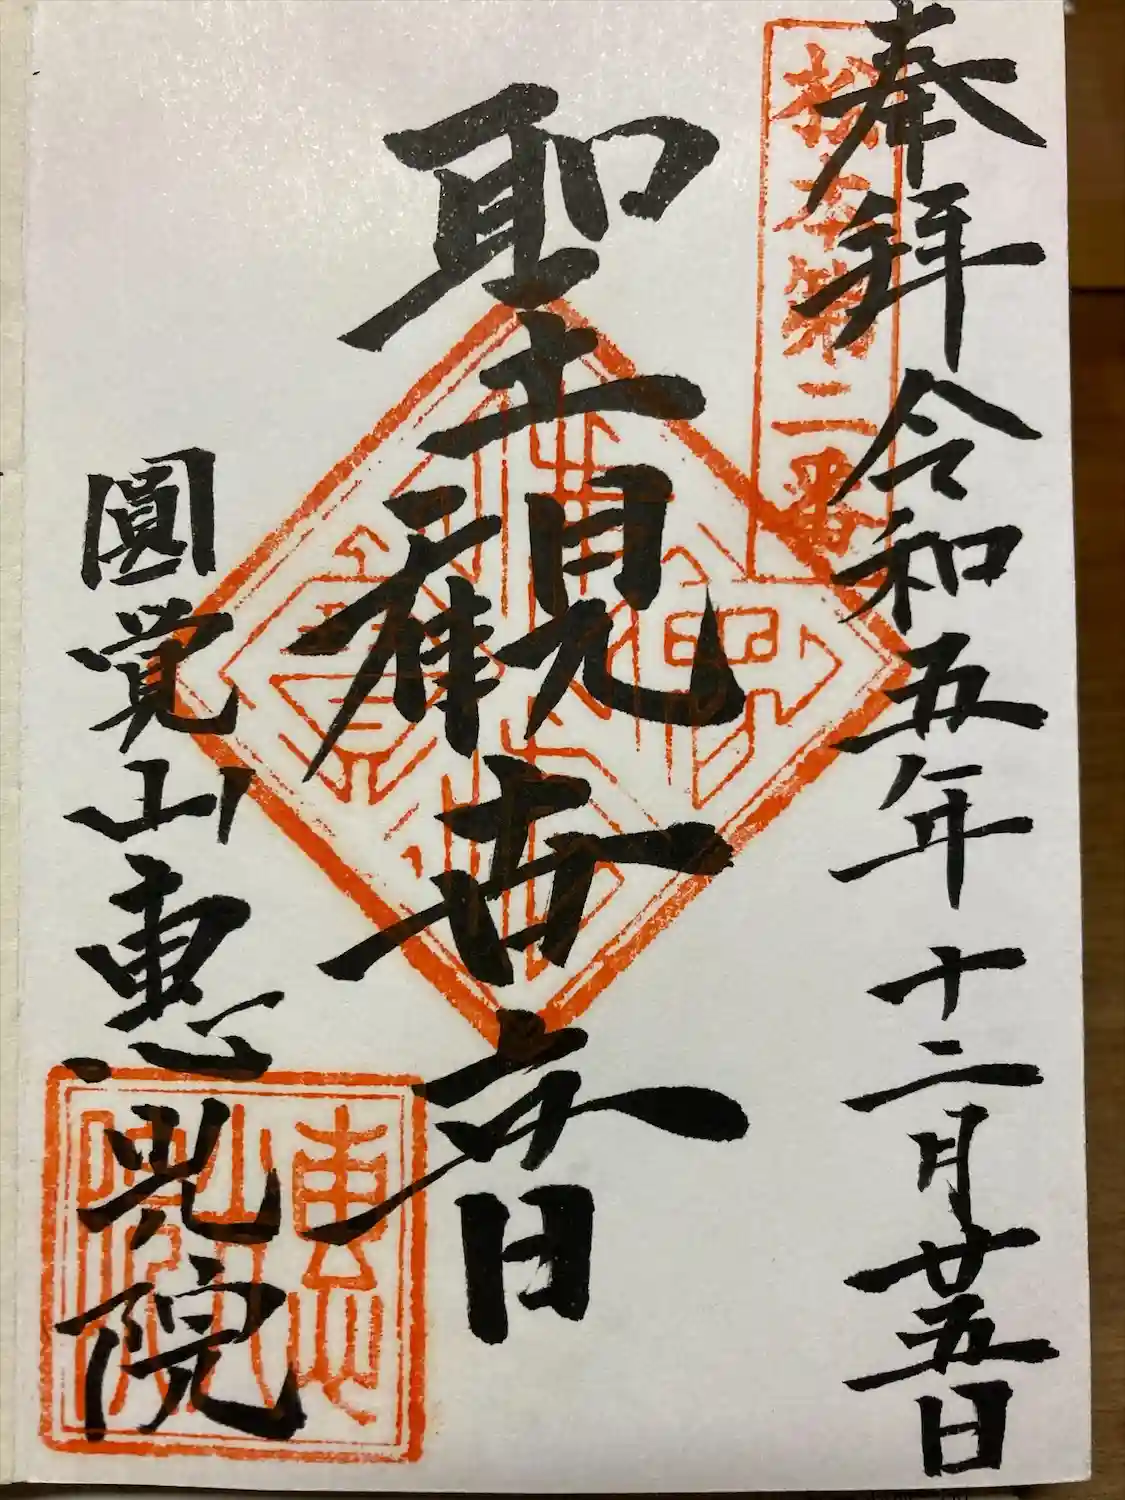 奉拝 令和五年十二月廿五日
第二番
聖観世音
圓覚山惠光院
惠光院